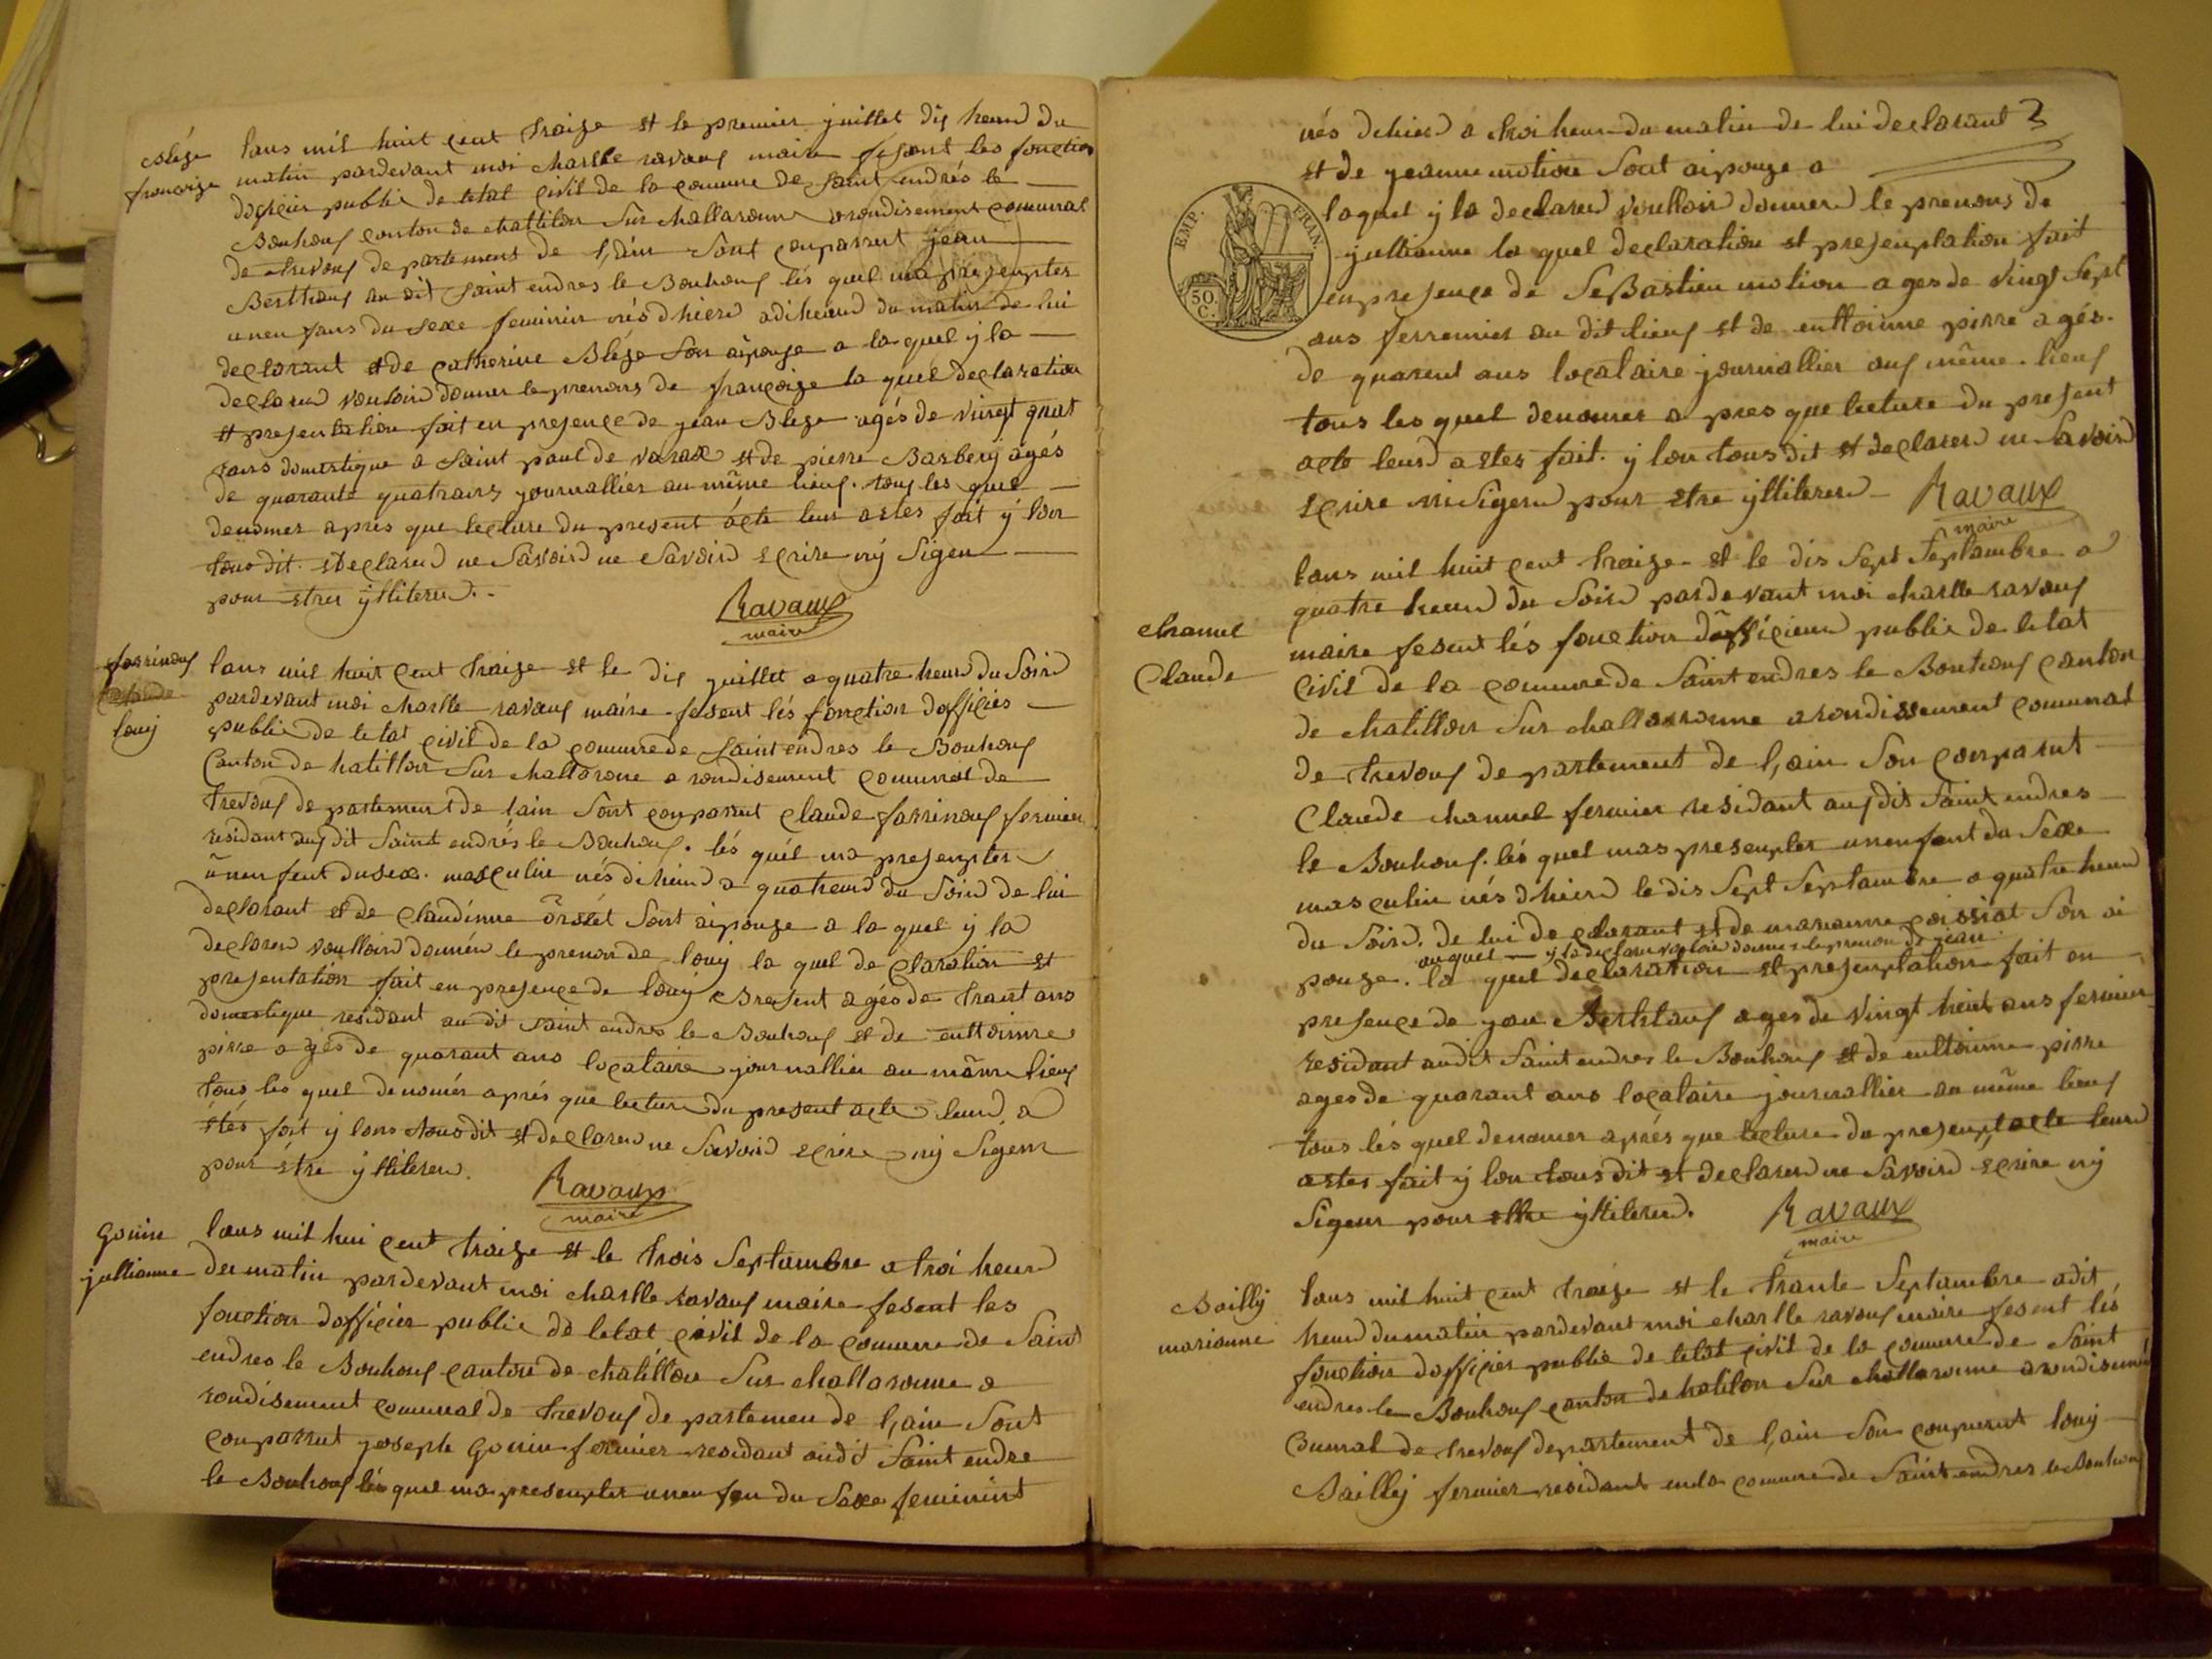 Blége
françoize
lans mil huit cent traize et le premier juillet dix heurd du
matin pardevant moi charlle ravaux maire fesant les fonction
doficier public de letat civil de la comune de saint endrés le
Bouhoux conton de chattilon sur challaronne arondisement comunal
de trevoux departement de l,ain sont conparrut jean
Berthoux au dit saint endres le Bouhoux lés quel ma presempter
unenfans du sexe feminin nés d'hierd a diheurd du matin de lui
declarant et de catherine Blége son aipouze a la quel y la
declarerd vouloird donner le prenons de françoize la quel declaration
et presentation fait en presence de jean Blege agés de vingt quat
rans domestique a saint paul de varax et de pierre Barbery agés
de quarante quatrans journallier au même lieux. tous les quel
denomer aprés que lecture du present acte leur astés fait y lon
tous dit et declarerd ne savoird ne savoird ecrire ny sigen
pour etrer yllitererd.
Ravaux
maire
farrinoux
louy
lans mil huit cent traize et le dix juillet a quatre heurd du soird
pardevant moi charlle ravaux maire fesent lés fonction dofficiés
public de letat civil de la comune de saint endres le Bouhoux
canton de hatillon sur challarone a rondisement comunal de
trevoux de partement de lain sont conparrut claude farrinoux fermier
residant aux dit saint endrés le Bouhoux. lés quél ma presempter
unenfent du sex. masculin nés dihierd a quatreurd du soird de lui
declarant et de claudinne orset sont aipouze a la quel y la
declarerd voulloird donnér le prenon de louy la quel declaration et
presentation fait en presence de louy Bresent agés de traint ans
domestique residant au dit saint endres le Bouhoux et de enttoinne
pirre agés de quarant ans locataire journallier au même lieux
tous les quel denomér aprés que lecture du present acte leurd a
étés fait y lons tous dit et declarerd ne savoird ecrire ny sigenr
pour étre yllitererd.
Ravaux
maire
Gonin
jullianne
lans mil hui cent traize et le trois septambre a troi heurd
du matin pardevant moi charlle ravaux maire fesent les
fonction dofficier public de letat civil de la comune de saint
endres le Bouhoux canton de chatillon sur challaronne a
rondisement comunal de trevoux de partemen de l,ain sont
conparrut joseph Gonin fermier residant audit saint endre
le Bouhoux lés quel ma presempter unenfen du sexe feminint
nés dehierd a troi heur du matin de lui declarant
et de jeanne motion sont aipouze a
EMP. FRAN.
50
C.
laquel y la declarerd voulloird donnerd le prenons de
jullianne la quel declaration et presemptation fait
enpresence de seBastien motion ages de vingt sept
ans ferremier au dit lieux et de enttoinne pirre agés
de quarent ans locataire journallier aux même lieux
tous les quel denomer a pres que lecture du present
acte leurd astes fait. y lon tous dit et declarerd ne savoird
ecrire ni sigerd pour etre yllitererd
Ravaux
maire
chanel
Claude
lans mil huit cent traize et le dis sept septambre a
quatre heurd du soird pardevant moi charlle ravaux
maire fesent lés fonction dofficieur public de letat
civil de la comune de saint endres le Bouhoux canton
de chatillon sur challaronne arondissement comunal
de trevoux de partement de l,ain son conparut
Claude channel fermier residant aux dit saint endres
le Bouhoux. lés quel mas presempter unenfent du sexe
masculin nés d'hierd le dis sept septambre a quatre heurd
du soird. de lui declarant et de marianne poissiat son ai
auquel y la declarer voloir donner le prenon de jean
pouze. la quel declaration et presemptation fait en
presence de jean Berthoux ages de vingt huit ans fermier
residant audit saint endres le Bouhoux et de enttoinne pirre
ages de quarant ans locataire journallier au même lieux
tous lés quel denomer aprés que lecture du presempt acte leurd
astes fait y lon tous dit et declarerd ne savoird ecrire ny
sigenr pour etre yllitererd.
Ravaux
maire
Bailly
marianne
lans mil huit cent traize et le trante septambre a dit
heurd du matin pardevant moi charlle ravoux maire fesent lés
fonction dofficier public de letat civil de la comune de saint
endres le Bouhoux canton de hatilon sur challaronne arondisement
cumnal de trevoux departement de l,ain son conparrut louy
Bailly fermier residant en la comune de saint endres le Bouhoux